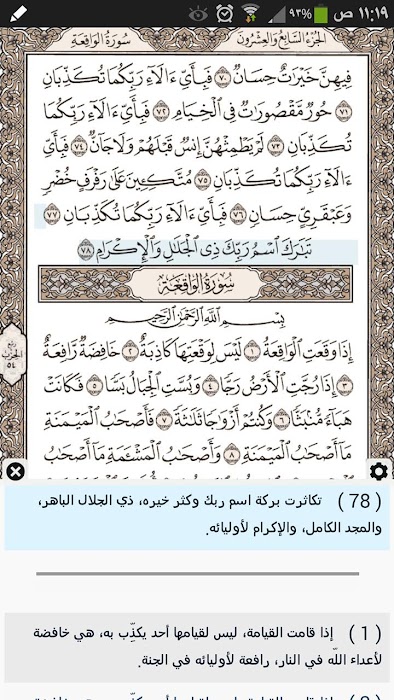 ١١:١٩ ص ٩٣%
الجزء السابع والعشرون سورة الواقعة
فِيهِنَّ خَيْرَاتٌ حِسَانٌ ٧٠ فَبِأَيِّ ءَالَآءِ رَبِّكُمَا تُكَذِّبَانِ
٧١ حُورٌ مَّقْصُورَاتٌ فِي الْخِيَامِ ٧٢ فَبِأَيِّ ءَالَآءِ رَبِّكُمَا
تُكَذِّبَانِ ٧٣ لَمْ يَطْمِثْهُنَّ إِنسٌ قَبْلَهُمْ وَلَا جَانٌّ ٧٤ فَبِأَيِّ
ءَالَآءِ رَبِّكُمَا تُكَذِّبَانِ ٧٥ مُتَّكِئِينَ عَلَىٰ رَفْرَفٍ خُضْرٍ
وَعَبْقَرِيٍّ حِسَانٍ ٧٦ فَبِأَيِّ ءَالَآءِ رَبِّكُمَا تُكَذِّبَانِ ٧٧
تَبَارَكَ اسْمُ رَبِّكَ ذِي الْجَلَالِ وَالْإِكْرَامِ ٧٨
سُورَةُ الْوَاقِعَةِ
بِسْمِ اللَّهِ الرَّحْمَٰنِ الرَّحِيمِ
إِذَا وَقَعَتِ الْوَاقِعَةُ ١ لَيْسَ لِوَقْعَتِهَا كَاذِبَةٌ ٢ خَافِضَةٌ رَّافِعَةٌ
٣ إِذَا رُجَّتِ الْأَرْضُ رَجًّا ٤ وَبُسَّتِ الْجِبَالُ بَسًّا ٥ فَكَانَتْ
هَبَآءً مُّنۢبَثًّا ٦ وَكُنتُمْ أَزْوَاجًا ثَلَاثَةً ٧ فَأَصْحَابُ الْمَيْمَنَةِ
مَآ أَصْحَابُ الْمَيْمَنَةِ ٨ وَأَصْحَابُ الْمَشْـَٔمَةِ مَآ أَصْحَابُ
ربع
الحزب
٥٤
(78) تكاثرت بركة اسم ربك وكثر خيره، ذي الجلال الباهر،
والمجد الكامل، والإكرام لأوليائه.
(1) إذا قامت القيامة، ليس لقيامها أحد يكذِّب به، هي خافضة
لأعداء اللّه في النار، رافعة لأوليائه في الجنة.